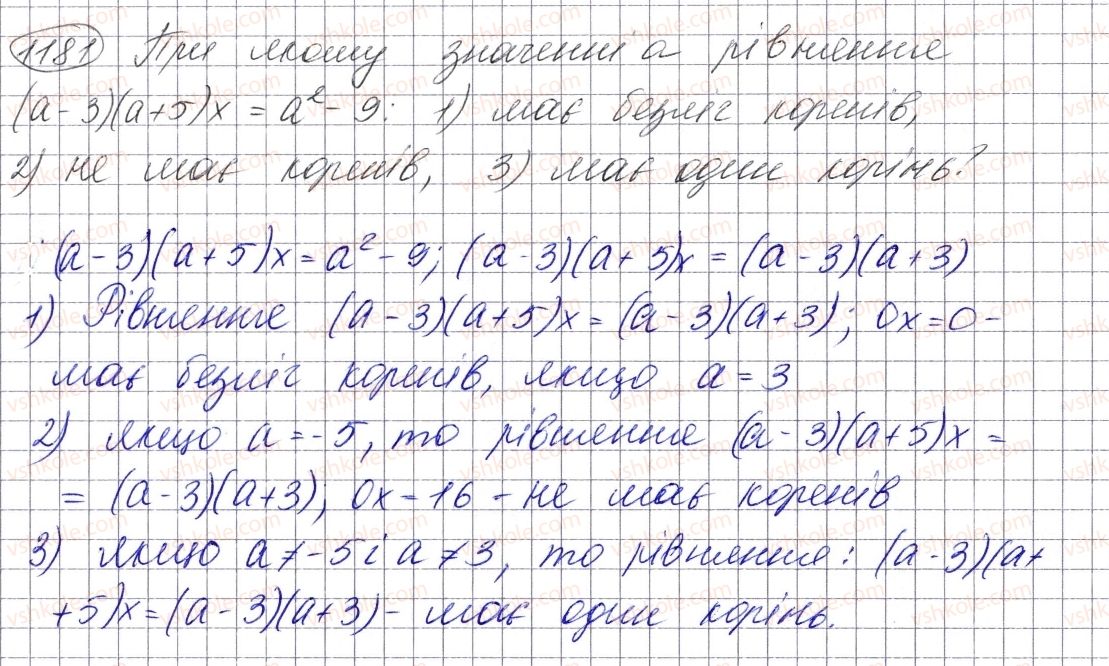 1181 При якому значенні a рівняння
(a-3)(a+5)x = a² - 9: 1) має безліч коренів,
2) не має коренів, 3) має один корінь?
(a-3)(a+5)x = a² - 9; (a-3)(a+5)x = (a-3)(a+3)
1) Рівняння (a-3)(a+5)x = (a-3)(a+3); 0x=0 -
має безліч коренів, якщо a = 3
2) якщо a = -5, то рівняння (a-3)(a+5)x =
= (a-3)(a+3); 0x = 16 - не має коренів
3) якщо a ≠ -5 і a ≠ 3, то рівняння: (a-3)(a+
+5)x = (a-3)(a+3) - має один корінь.